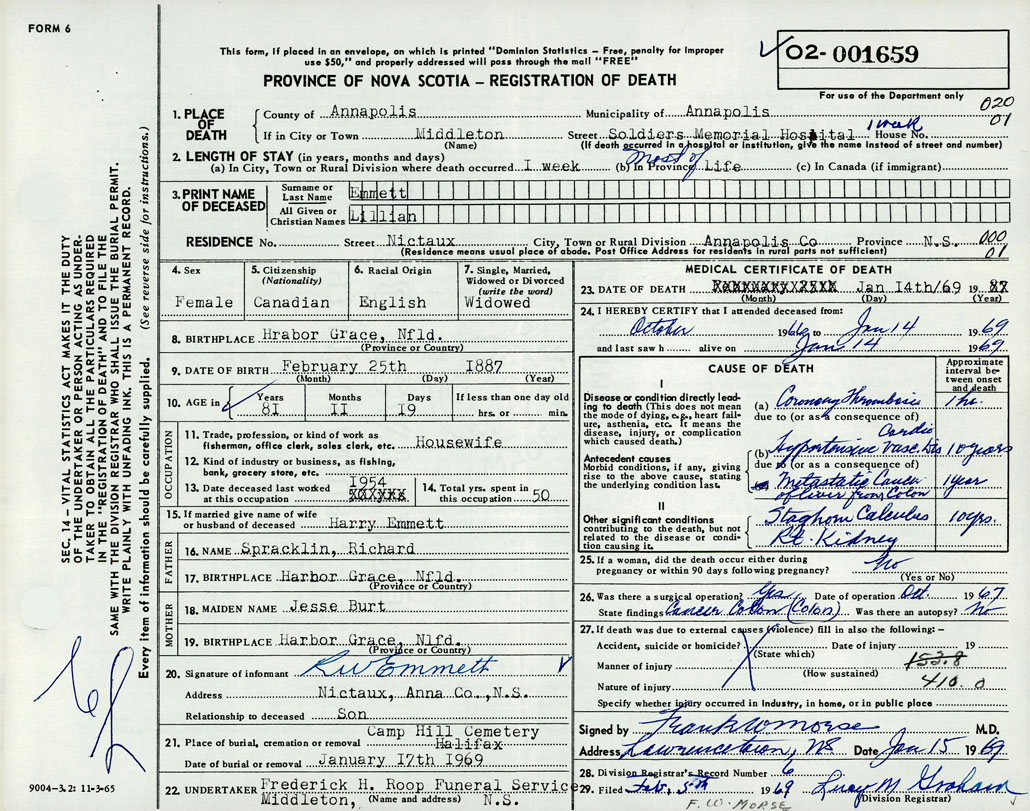 FORM 6
This form, if placed in an envelope, on which is printed "Dominion Statistics – Free, penalty for improper
use $50," and properly addressed will pass through the mail "FREE"
PROVINCE OF NOVA SCOTIA – REGISTRATION OF DEATH
✓ O2- 001659
For use of the Department only
020
01
1. PLACE OF DEATH
County of Annapolis Municipality of Annapolis
1 week
If in City or Town Middleton Street Soldiers Memorial Hospital House No.
(Name) (If death occurred in a hospital or institution, give the name instead of street and number)
2. LENGTH OF STAY (in years, months and days)
Most of
(a) In City, Town or Rural Division where death occurred I week (b) In Province Life (c) In Canada (if immigrant)
3. PRINT NAME OF DECEASED
Surname or Last Name Emmett
All Given or Christian Names Lillian
RESIDENCE No. Street Nictaux City, Town or Rural Division Annapolis Co Province N.S. 000
01
(Residence means usual place of abode. Post Office Address for residents in rural parts not sufficient)
4. Sex
Female
5. Citizenship
(Nationality)
Canadian
6. Racial Origin
English
7. Single, Married,
Widowed or Divorced
(write the word)
Widowed
8. BIRTHPLACE Hrabor Grace, Nfld.
(Province or Country)
9. DATE OF BIRTH February 25th I887
(Month) (Day) (Year)
10. AGE in
Years Months Days If less than one day old
8I II I9 hrs. or min.
OCCUPATION
11. Trade, profession, or kind of work as
fisherman, office clerk, sales clerk, etc. Housewife
12. Kind of industry or business, as fishing,
bank, grocery store, etc.
13. Date deceased last worked
at this occupation I954
14. Total yrs. spent in
this occupation 50
15. If married give name of wife
or husband of deceased Harry Emmett
FATHER
16. NAME Spracklin, Richard
17. BIRTHPLACE Harbor Grace, Nfld.
(Province or Country)
MOTHER
18. MAIDEN NAME Jesse Burt
19. BIRTHPLACE Harbor Grace, Nlfd.
(Province or Country)
20. Signature of informant R W Emmett
Address Nictaux, Anna Co.,N.S.
Relationship to deceased Son
21. Place of burial, cremation or removal Camp Hill Cemetery
Halifax
Date of burial or removal January I7th I969
22. UNDERTAKER Frederick H. Roop Funeral Service
Middleton, (Name and address) N.S.
MEDICAL CERTIFICATE OF DEATH
23. DATE OF DEATH Jan I4th/69 19
(Month) (Day) (Year)
24. I HEREBY CERTIFY that I attended deceased from:
October 1966 to Jan 14 1969
and last saw h alive on Jan 14 1969
CAUSE OF DEATH
Approximate interval between onset and death
I
Disease or condition directly leading to death (This does not
mean the mode of dying, e.g., heart failure, asthenia, etc. It means the
disease, injury, or complication
which caused death.)
(a) Coronary Thrombosis 1 hr.
due to (or as a consequence of)
Cardio
Antecedent causes
Morbid conditions, if any, giving
rise to the above cause, stating
the underlying condition last.
(b) Hypertensive Vasc. Dis 10 years
due to (or as a consequence of)
Metastatic Cancer 1 year
of liver from Colon
II
Other significant conditions
contributing to the death, but not
related to the disease or condition causing it.
Staghorn Calculus 10 yrs.
Rt. Kidney
25. If a woman, did the death occur either during
pregnancy or within 90 days following pregnancy? No
(Yes or No)
26. Was there a surgical operation? Yes Date of operation Oct. 1967
State findings Cancer Colon (Colon) Was there an autopsy? No
27. If death was due to external causes (violence) fill in also the following: –
Accident, suicide or homicide? Date of injury 19
(State which)
Manner of injury 153.8
(How sustained)
Nature of injury 410.0
Specify whether injury occurred in industry, in home, or in public place
Signed by Frank W Morse M.D.
Address Lawrencetown, NS Date Jan 15 1969
28. Division Registrar's Record Number 6
29. Filed Feb. 5th 1969 Lucy M Graham
Division Registrar
F. W. MORSE
SEC. 14 – VITAL STATISTICS ACT MAKES IT THE DUTY
OF THE UNDERTAKER OR PERSON ACTING AS UNDERTAKER TO OBTAIN ALL THE PARTICULARS REQUIRED
IN THE "REGISTRATION OF DEATH" AND TO FILE THE
SAME WITH THE DIVISION REGISTRAR WHO SHALL ISSUE THE BURIAL PERMIT.
WRITE PLAINLY WITH UNFADING INK. THIS IS A PERMANENT RECORD.
Every item of information should be carefully supplied. (See reverse side for instructions.)
9004-3.2: 11-3-65